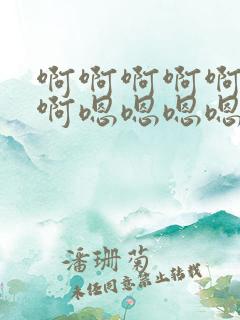 啊啊啊啊啊
啊嗯嗯嗯嗯
潘珊菊
未经同意禁止转载